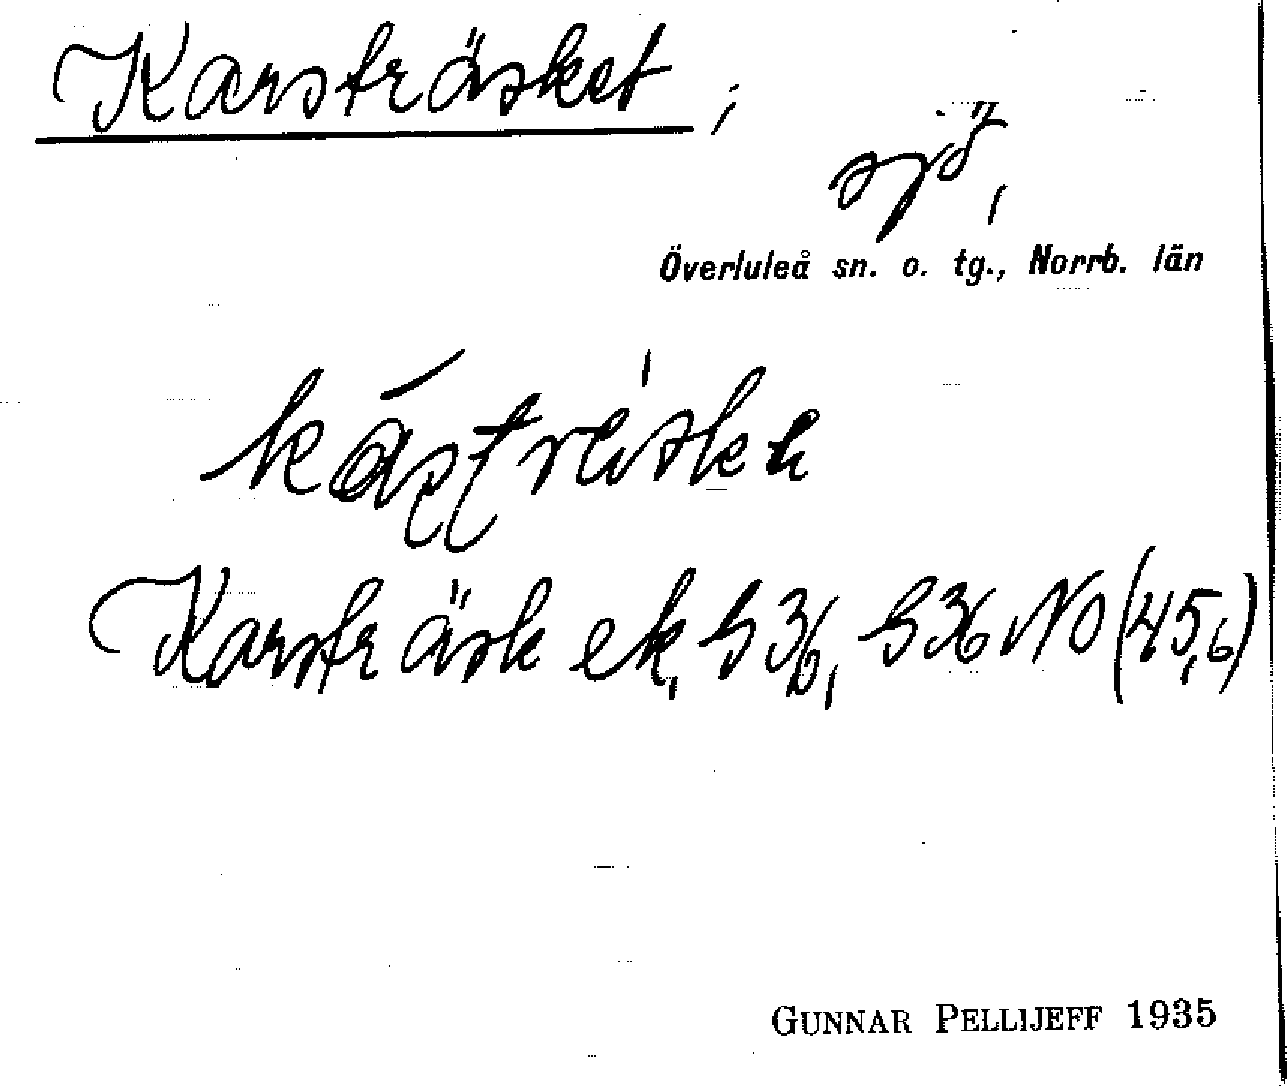 Karsträsket,
sjö,
Överluleå sn. o. tg., Norrb. län
Karsträsk ek, S 36, S 36 NO (45,6)
GUNNAR PELLIJEFF 1935